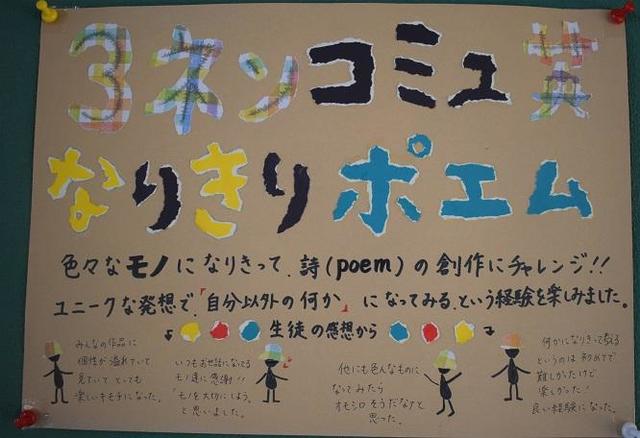 3ネンコミュ英
なりきりポエム
色々なモノになりきって、詩(poem)の創作にチャレンジ!!
ユニークな発想で、「自分以外の何か」になってみる、という経験を楽しみました。
生徒の感想から
みんなの作品に
個性が溢れていて
見ていてとっても
楽しいキモチになった。
いつもお世話になってる
モノ達に感謝!!
「モノを大切にしよう」
と思いました。
他にも色んなものに
なってみたら
オモシロそうだなぁと
思った。
何かになりきって書る
というのは初めてで
難しかったけど
楽しかった!
良い経験になった。